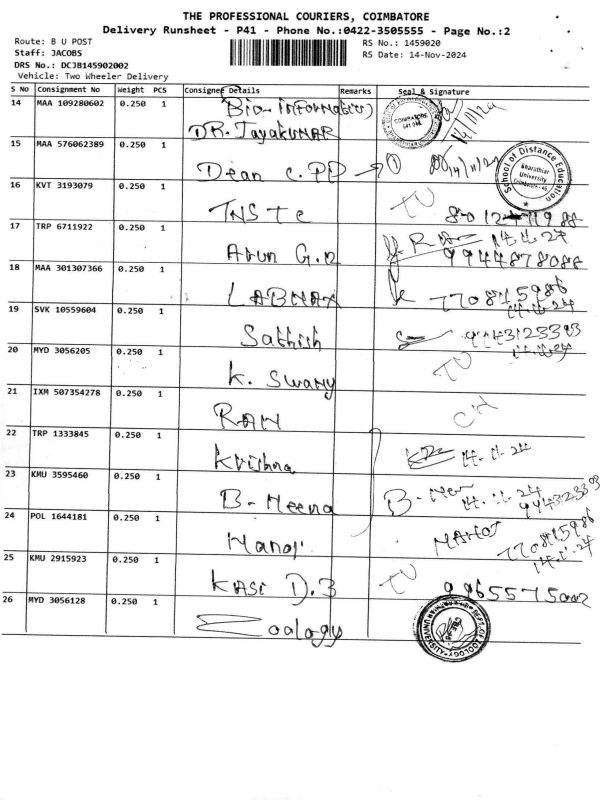 THE PROFESSIONAL COURIERS, COIMBATORE
Delivery Runsheet - P41 - Phone No.:0422-3505555 - Page No.:2
Route: B U POST
RS No.: 1459020
Staff: JACOBS
RS Date: 14-Nov-2024
DRS No.: DCJB145902002
Vehicle: Two Wheeler Delivery
S No Consignment No Weight PCS Consignee Details Remarks Seal & Signature
14 MAA 109280602 0.250 1 Bio-informatics
DR. Jayakumar
COIMBATORE
15 MAA 576062389 0.250 1
Dean C. PD 1 14/11/24
School of Distance Education
Bharathiar
University
Coimbatore - 46
16 KVT 3193079 0.250 1
TNSTC TU
17 TRP 6711922 0.250 1 14.11.24
Arun G.R 9944878088
18 MAA 301307366 0.250 1
LABMAX 770815986
14.11.24
19 SVK 10559604 0.250 1
Sathish 9443123393
14.11.24
20 MYD 3056205 0.250 1
K. Swamy TU
21 IXM 507354278 0.250 1
RAM CH
22 TRP 1333845 0.250 1
Krishna 14.11.24
23 KMU 3595460 0.250 1
B-Meena B-Mee 14.11.24
24 POL 1644181 0.250 1
Manoj MANOJ 770815986
14.11.24
25 KMU 2915923 0.250 1
KASI D.3 TU 9965575002
26 MYD 3056128 0.250 1
Zoology
DEPT.OF ZOOLOGY